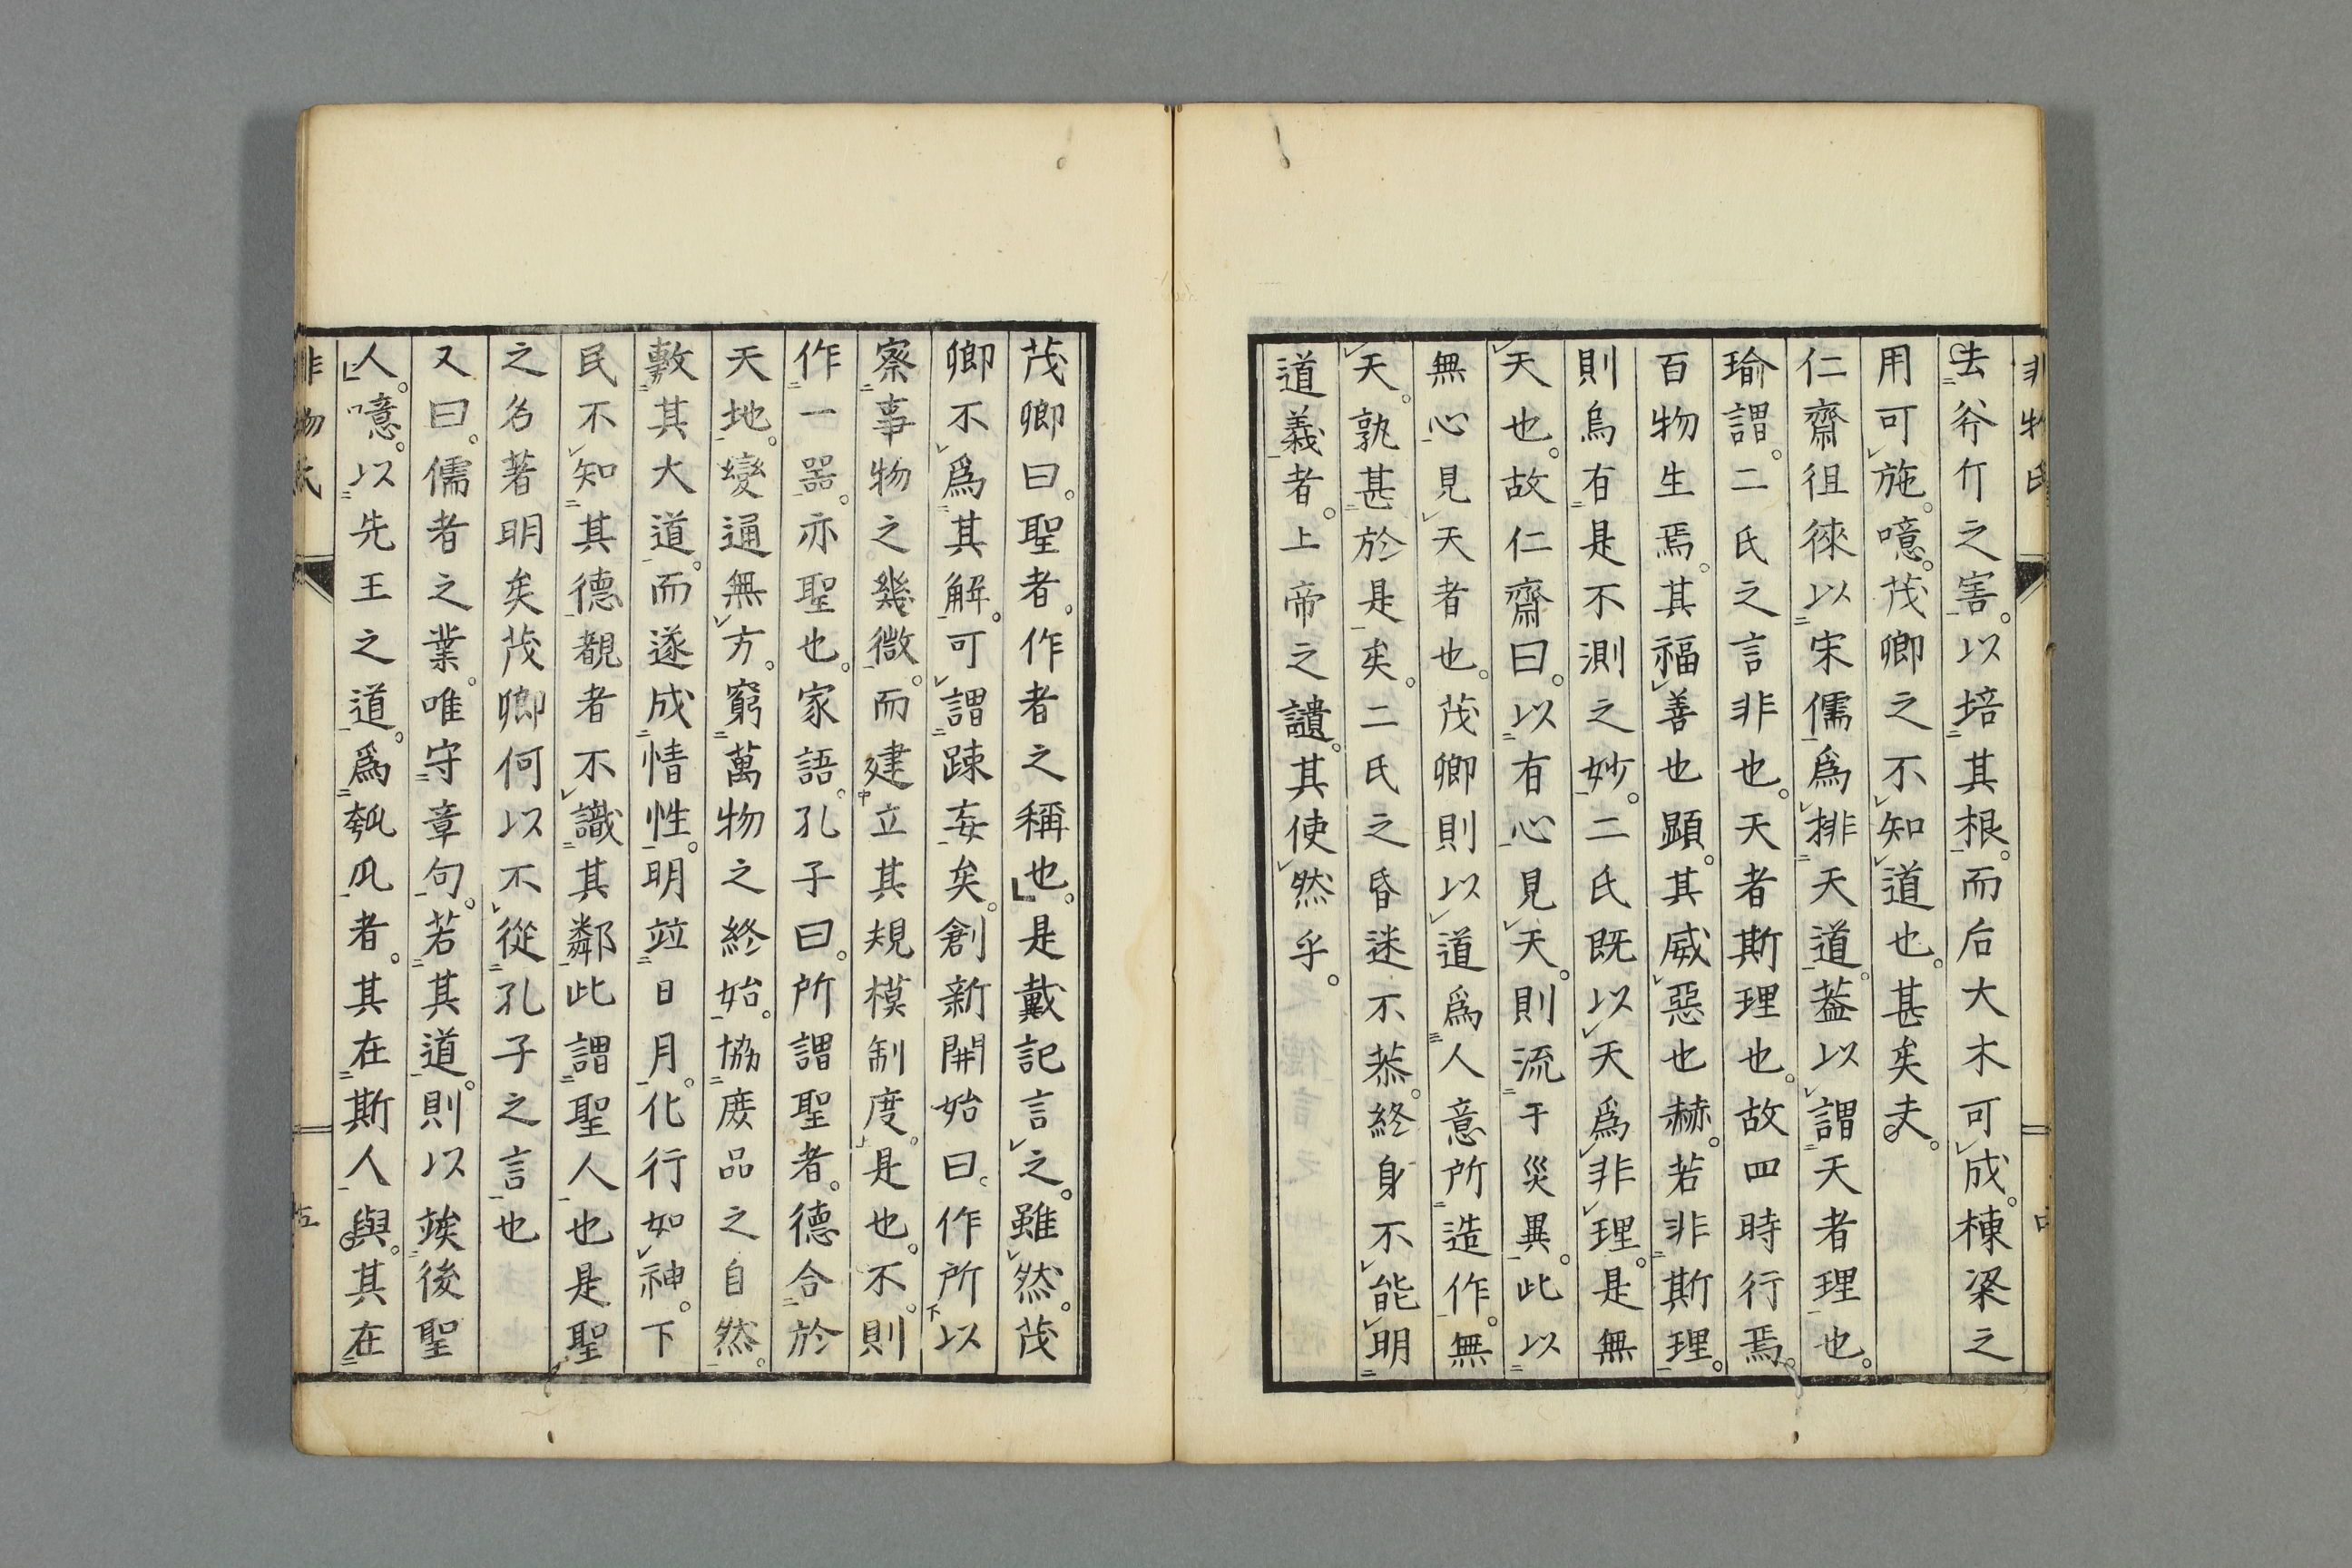 去斧斤之害。以培其根。而后大木可成。棟梁之
用可施。噫。茂卿之不知道也。甚矣夫。
仁齋徂徠以宋儒爲排天道。葢以謂天者理也。
瑜謂。二氏之言非也。天者斯理也。故四時行焉。
百物生焉。其福善也顕。其威惡也赫。若非斯理。
則烏有是不測之妙。二氏既以天爲非理。是無
天也。故仁齋曰。以有心見天。則流于災異。此以
無心見天者也。茂卿則以道爲人意所造作。無
天。孰甚於是矣。二氏之昏迷不恭。終身不能明
道義者。上帝之譴。其使然乎。
茂卿曰。聖者。作者之稱也。是戴記言之。雖然。茂
卿不爲其解。可謂踈妄矣。創新開始曰。作所以
察事物之幾微。而建立其規模制度。是也。不。則
作一噐。亦聖也。家語。孔子曰。所謂聖者。德合於
天地。變通無方。窮萬物之終始。協庹品之自然。
敷其大道。而遂成情性。明竝日月。化行如神。下
民不知其德覩者不識其鄰此謂聖人也是聖
之名著明矣茂卿何以不從孔子之言也
又曰。儒者之業。唯守章句。若其道。則以竢後聖
人。噫。以先王之道。爲瓠瓜者。其在斯人與。其在
非物氏
五